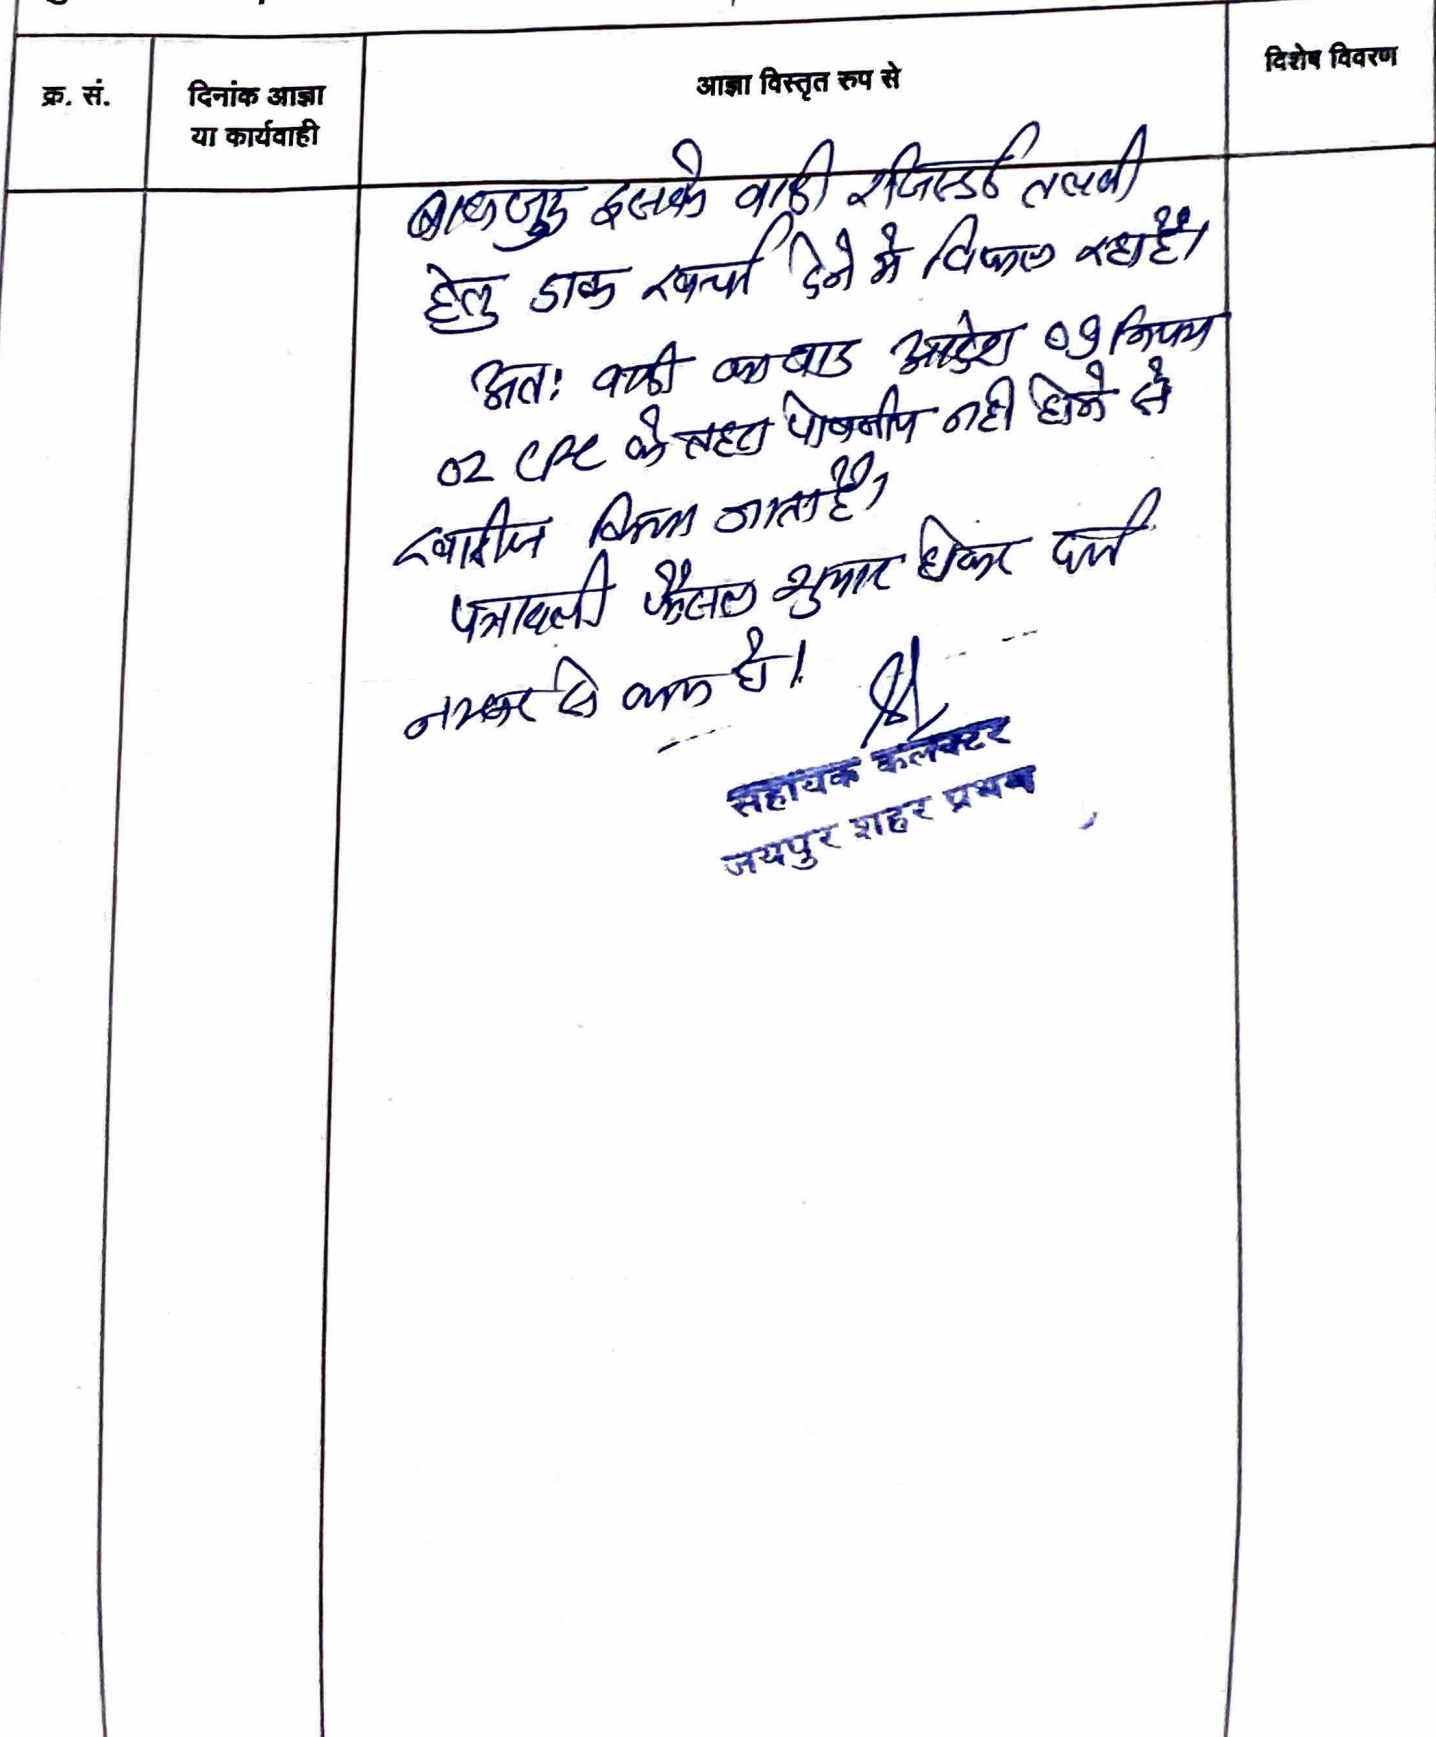 क्र. सं.
दिनांक आज्ञा
या कार्यवाही
आज्ञा विस्तृत रुप से
विशेष विवरण
बावजुद इसके वादी रजिस्टर्ड तलबी
हेतु डाक खर्चा देने मे विफल रहा है।
अत: वादी का वाद आदेश 09 नियम
02 CPC के तहत पोषनीय नही होने से
खारीज किया जाता है।
पत्रावली फैसल शुमार होकर दर्ज
नम्बर से कम हो।
सहायक कलक्टर
जयपुर शहर प्रथम